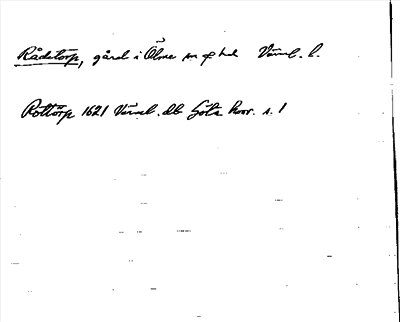 Rådstorp, gård i Ölme sn o hd Värml. l.
Rottorp 1621 Värml. db Göta hovr. s. 1